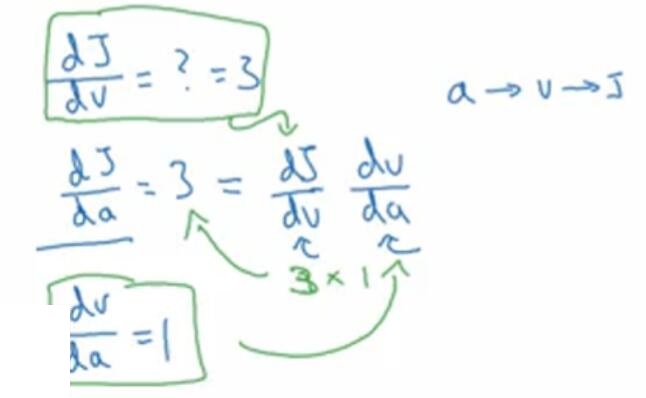 dJ/dv = ? = 3
a → v → J
dJ/da = 3 = dJ/dv dv/da
3 × 1
dv/da = 1